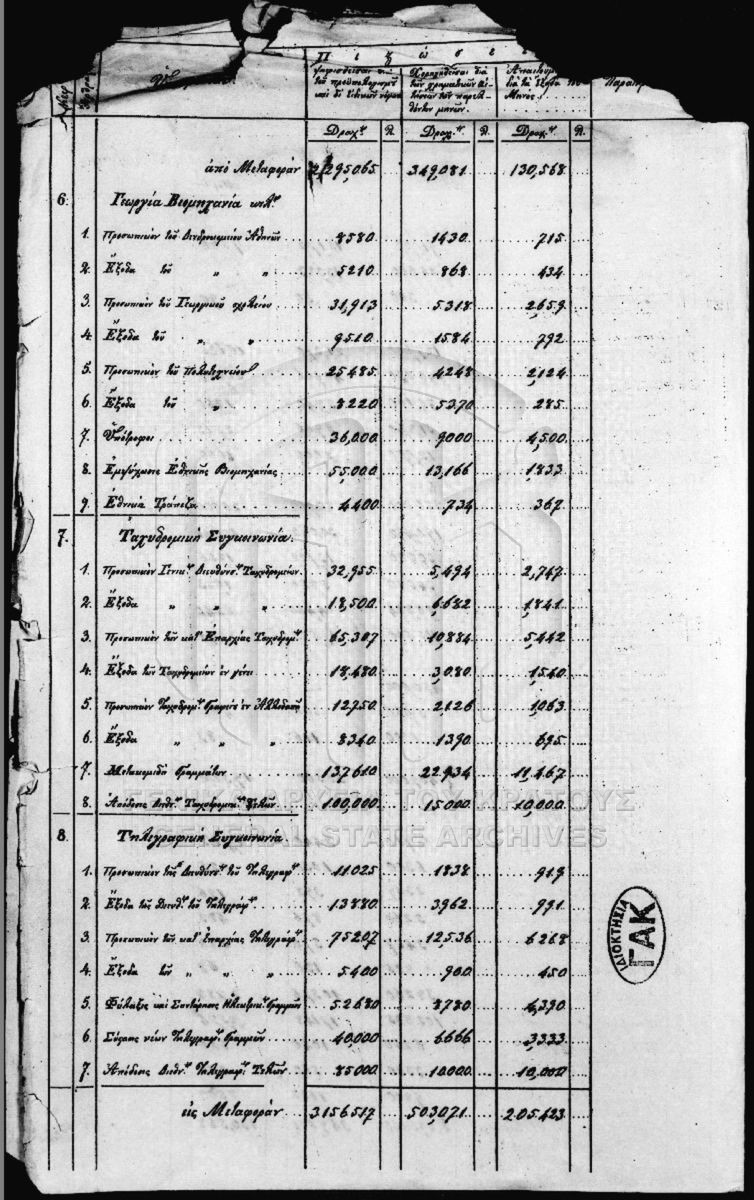 Π ι ς ώ σ ε ι
Ψηφισθεῖσαι
τοῦ προϋπολογισμοῦ
καὶ δι' εἰδικῶν νόμων
Χορηγηθεῖσαι διὰ
τῶν χρηματικῶν αἰ-
τήσεων τῶν παρελ-
θόντων μηνῶν.
Ἀπαιτούμ
διὰ τὰ ἔξοδα τοῦ
Μηνός.
Παρατη
Κεφ. Ἄρθρα
Δραχ. Λ. Δραχ. Λ. Δραχ. Λ.
ἀπὸ Μεταφορὰν 2,295,065 349,081 130,568
6. Γεωργία Βιομηχανία κτλ.
1. Προσωπικὸν τοῦ Δενδροκομείου Ἀθηνῶν 8580 1430 715
2. Ἔξοδα τοῦ „ „ 5210 868 434
3. Προσωπικὸν τοῦ Γεωργικοῦ σχολείου 31,913 5318 2,659
4. Ἔξοδα τοῦ „ „ 9510 1584 792
5. Προσωπικὸν τοῦ Πολυτεχνείου 25485 4248 2,124
6. Ἔξοδα τοῦ „ 8220 5370 285
7. Ὑπότροφοι 36,000 9000 4,500
8. Ἐμψύχωσις Ἐθνικῆς Βιομηχανίας 55,000 13,166 1,833
9. Ἐθνικὴ Τράπεζα 4400 734 367
7. Ταχυδρομικὴ Συγκοινωνία
1. Προσωπικὸν Γενικ. Διευθύνσ. Ταχυδρομείων 32,955 5,494 2,747
2. Ἔξοδα „ „ „ 18,500 6,682 1,841
3. Προσωπικὸν τῶν κατ' Ἐπαρχίας Ταχυδρομ. 65,307 10,884 5,442
4. Ἔξοδα τῶν Ταχυδρομείων ἐν γένει 18,480 3,080 1,540
5. Προσωπικὸν Ταχυδρομ. Γραφείων ἐν Ἀλλοδαπῇ 12,750 2,126 1,063
6. Ἔξοδα „ „ „ 8340 1390 695
7. Μετακομιδὴ Γραμμάτων 137610 22,934 11,467
8. Ἀπόδοσις Διεθν. Ταχυδρομικ. Τελῶν 100,000 15000 10,000
8. Τηλεγραφικὴ Συγκοινωνία
1. Προσωπικὸν τῆς Διευθύνσ. τοῦ Τηλεγραφ. 11025 1838 919
2. Ἔξοδα τῆς Διευθ. τοῦ Τηλεγράφ. 13880 3,962 991
3. Προσωπικὸν τῶν κατ' Ἐπαρχίας Τηλεγράφ. 75207 12,536 6268
4. Ἔξοδα τοῦ „ „ „ 5400 900 450
5. Φύλαξις καὶ Συντήρησις Ἠλεκτρικ. Γραμμῶν 52680 8780 4,390
6. Σύστασις νέων Τηλεγραφ. Γραμμῶν 40,000 6666 3,333
7. Ἀπόδοσις Διεθν. Τηλεγραφ. Τελῶν 85000 10000 10,000
εἰς Μεταφορὰν 3156517 503,071 205423
ΓΕΝΙΚΑ ΑΡΧΕΙΑ ΤΟΥ ΚΡΑΤΟΥΣ
GENERAL STATE ARCHIVES
ΙΔΙΟΚΤΗΣΙΑ
ΓΑΚ